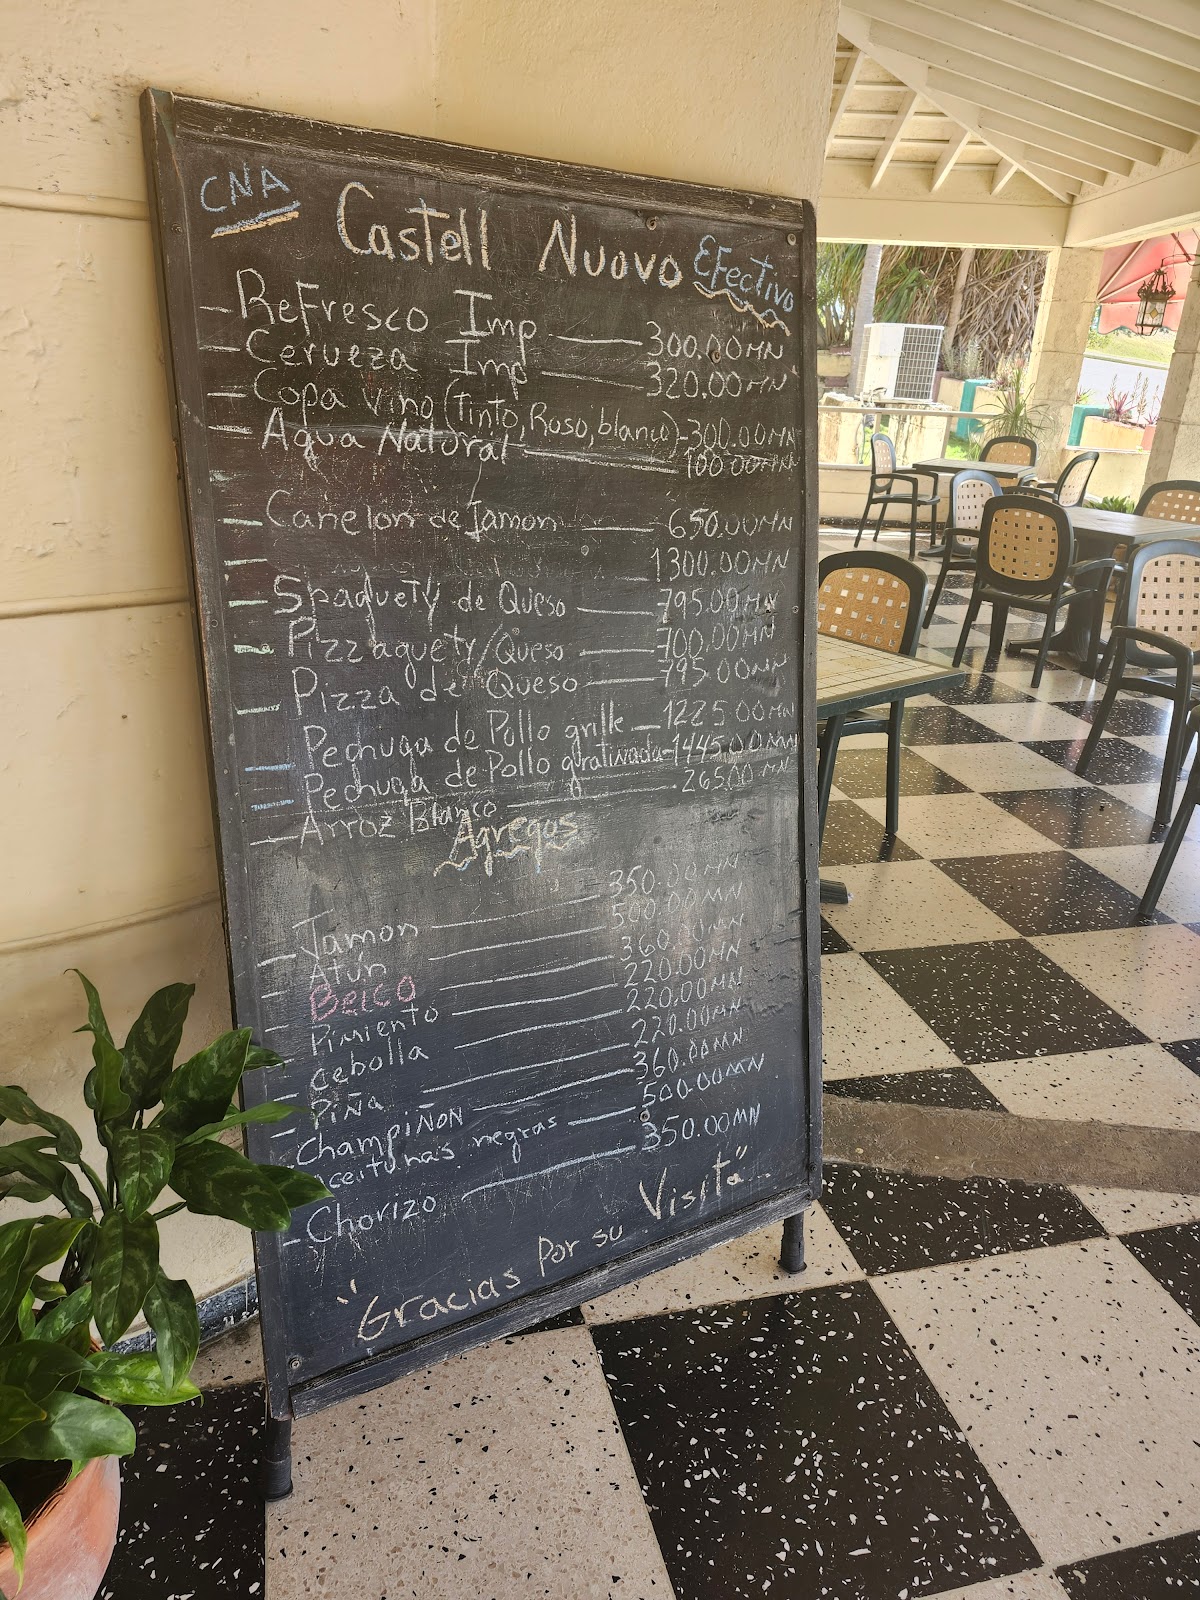 CNA
Castell Nuovo Efectivo
- Refresco Imp — 300.00MN
- Cerveza Imp — 320.00MN
- Copa Vino (Tinto, Roso, blanco) - 300.00MN
- Agua Natural — 100.00MN
- Canelon de Jamon — 650.00MN
- — 1300.00MN
- Spaguety de Queso — 795.00MN
- Pizzaguety/Queso — 700.00MN
- Pizza de Queso — 795.00MN
- Pechuga de Pollo grille — 1225.00MN
- Pechuga de Pollo gratinada - 1445.00MN
- Arroz Blanco — 265.00 MN
Agregos
- Jamon — 350.00MN
- Atún — 500.00MN
- Beico — 360.00MN
- Pimiento — 220.00MN
- Cebolla — 220.00MN
- Piña — 220.00MN
- ChampiÑON — 360.00MN
- aceitunas negras — 500.00MN
- Chorizo — 350.00MN
"Gracias Por su Visita"...